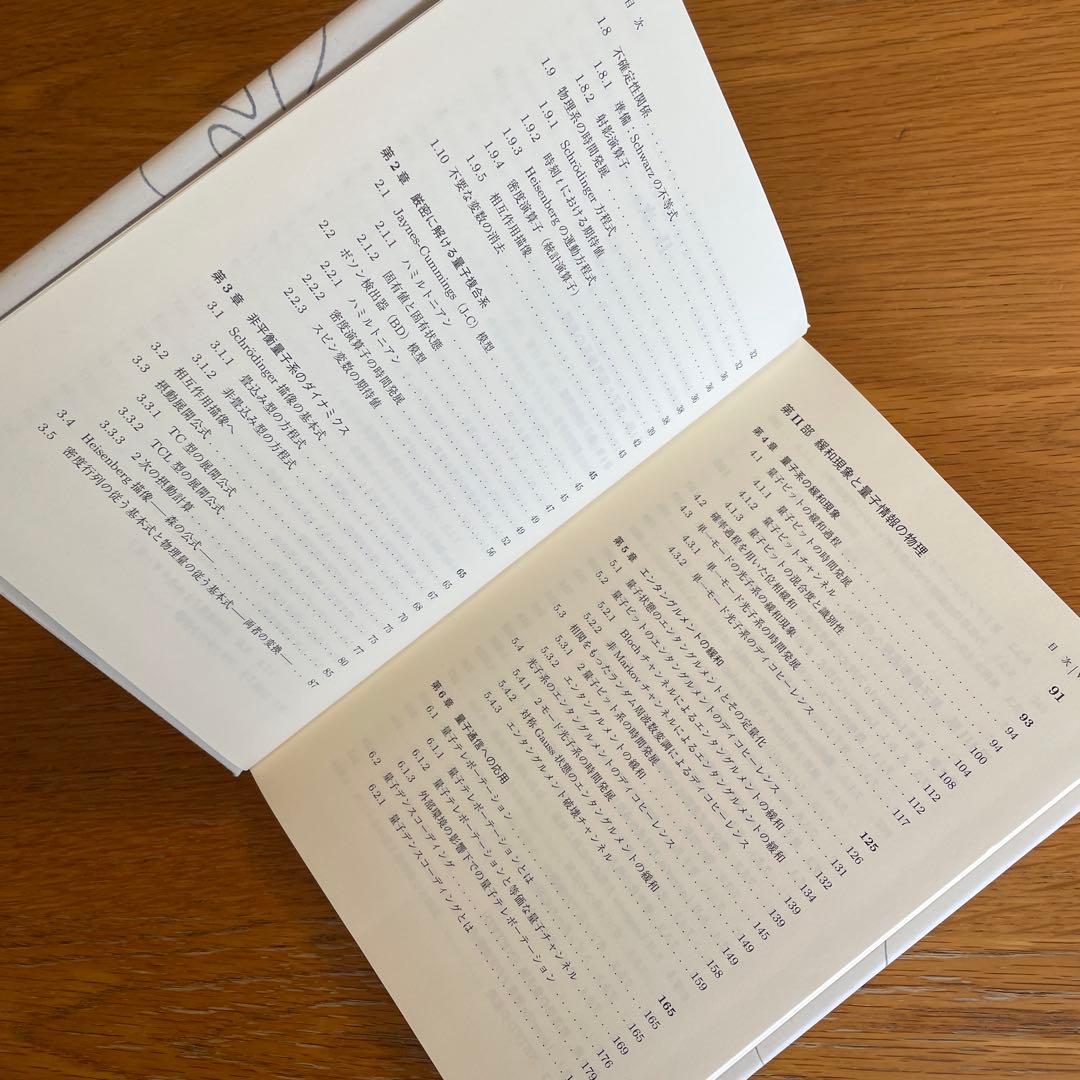 目 次
1.8 不確定性関係 32
1.8.1 準備:Schwarz の不等式 32
1.8.2 射影演算子 36
1.9 物理系の時間発展 36
1.9.1 Schrödinger 方程式 36
1.9.2 時刻 t における期待値 38
1.9.3 Heisenberg の運動方程式 38
1.9.4 密度演算子(統計演算子) 39
1.9.5 相互作用描像 42
1.10 不要な変数の消去 43
第2章 厳密に解ける量子複合系 45
2.1 Jaynes-Cummings (J-C) 模型 45
2.1.1 ハミルトニアン 45
2.1.2 固有値と固有状態 47
2.2 ボソン検出器 (BD) 模型 49
2.2.1 ハミルトニアン 49
2.2.2 密度演算子の時間発展 52
2.2.3 スピン変数の期待値 56
第3章 非平衡量子系のダイナミクス 65
3.1 Schrödinger 描像の基本式 65
3.1.1 畳込み型の方程式 67
3.1.2 非畳込み型の方程式 68
3.2 相互作用描像へ 70
3.3 摂動展開公式 75
3.3.1 TC 型の展開公式 75
3.3.2 TCL 型の展開公式 77
3.3.3 2 次の摂動計算 80
3.4 Heisenberg 描像――森の公式―― 85
3.5 密度行列の従う基本式と物理量の従う基本式――両者の変換―― 87
目 次
第II部 緩和現象と量子情報の物理 91
第4章 量子系の緩和現象 93
4.1 量子ビットの緩和過程 94
4.1.1 量子ビットの時間発展 94
4.1.2 量子ビットチャンネル 100
4.1.3 量子ビットの混合度と識別性 104
4.2 確率過程を用いた位相緩和 108
4.3 単一モードの光子系の緩和現象 112
4.3.1 単一モード光子系の時間発展 112
4.3.2 単一モード光子系のデコヒーレンス 117
第5章 エンタングルメントの緩和 125
5.1 量子状態のエンタングルメントとその定量化 126
5.2 量子ビットのエンタングルメントのデコヒーレンス 131
5.2.1 Bloch チャンネルによるエンタングルメントの緩和 132
5.2.2 非 Markov チャンネルによるエンタングルメントの緩和 134
5.3 相関をもったランダム周波数変調によるデコヒーレンス 139
5.3.1 2 量子ビット系の時間発展 139
5.3.2 エンタングルメントの緩和 145
5.4 光子系のエンタングルメントのデコヒーレンス 149
5.4.1 2 モード光子系の時間発展 149
5.4.2 対称 Gauss 状態のエンタングルメントの緩和 158
5.4.3 エンタングルメント破壊チャンネル 159
第6章 量子通信への応用 165
6.1 量子テレポーテーション 165
6.1.1 量子テレポーテーションとは 165
6.1.2 量子テレポーテーションと等価な量子チャンネル 169
6.1.3 外部環境の影響下での量子テレポーテーション 176
6.2 量子デンスコーディング 179
6.2.1 量子デンスコーディングとは